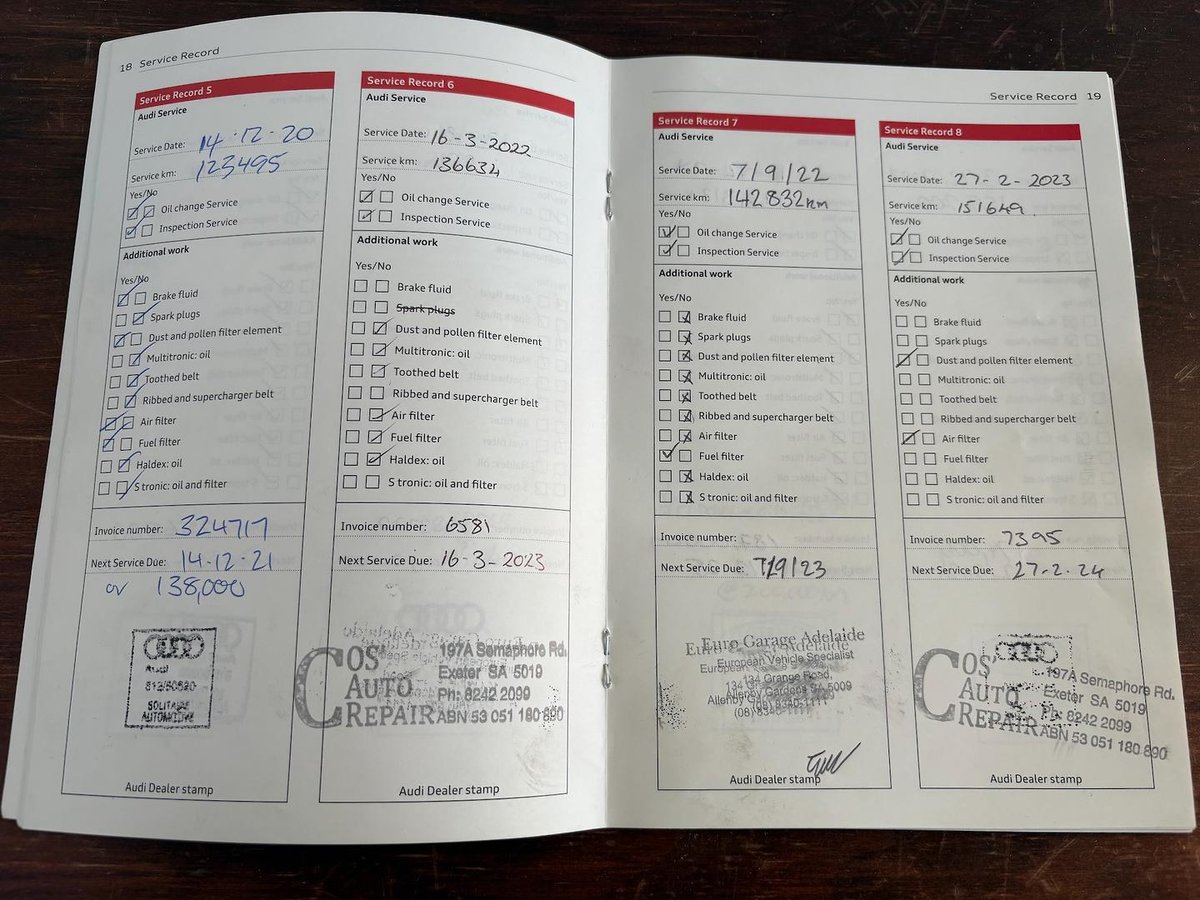 18 Service Record
Service Record 5
Audi Service
Service Date: 14·12·20
Service km: 123495
Yes/No
Oil change Service
Inspection Service
Additional work
Yes/No
Brake fluid
Spark plugs
Dust and pollen filter element
Multitronic: oil
Toothed belt
Ribbed and supercharger belt
Air filter
Fuel filter
Haldex: oil
S tronic: oil and filter
Invoice number: 324717
Next Service Due: 14·12·21
or 138,000
SOLITAIRE
AUTOMOTIVE
Audi Dealer stamp
Service Record 6
Audi Service
Service Date: 16-3-2022
Service km: 136634
Yes/No
Oil change Service
Inspection Service
Additional work
Yes/No
Brake fluid
Spark plugs
Dust and pollen filter element
Multitronic: oil
Toothed belt
Ribbed and supercharger belt
Air filter
Fuel filter
Haldex: oil
S tronic: oil and filter
Invoice number: 6581
Next Service Due: 16-3-2023
COS'
AUTO
REPAIR
197A Semaphore Rd.
Exeter SA 5019
Ph: 8242 2099
ABN 53 051 180 890
Audi Dealer stamp
Service Record 19
Service Record 7
Audi Service
Service Date: 7/9/22
Service km: 142832km
Yes/No
Oil change Service
Inspection Service
Additional work
Yes/No
Brake fluid
Spark plugs
Dust and pollen filter element
Multitronic: oil
Toothed belt
Ribbed and supercharger belt
Air filter
Fuel filter
Haldex: oil
S tronic: oil and filter
Invoice number:
Next Service Due: 7/9/23
Euro Garage Adelaide
European Vehicle Specialist
134 Grange Road,
Allenby Gardens SA 5009
(08) 8340-1111
Audi Dealer stamp
Service Record 8
Audi Service
Service Date: 27-2-2023
Service km: 151649
Yes/No
Oil change Service
Inspection Service
Additional work
Yes/No
Brake fluid
Spark plugs
Dust and pollen filter element
Multitronic: oil
Toothed belt
Ribbed and supercharger belt
Air filter
Fuel filter
Haldex: oil
S tronic: oil and filter
Invoice number: 7395
Next Service Due: 27-2-24
COS'
AUTO
REPAIR
197A Semaphore Rd.
Exeter SA 5019
Ph: 8242 2099
ABN 53 051 180 890
Audi Dealer stamp